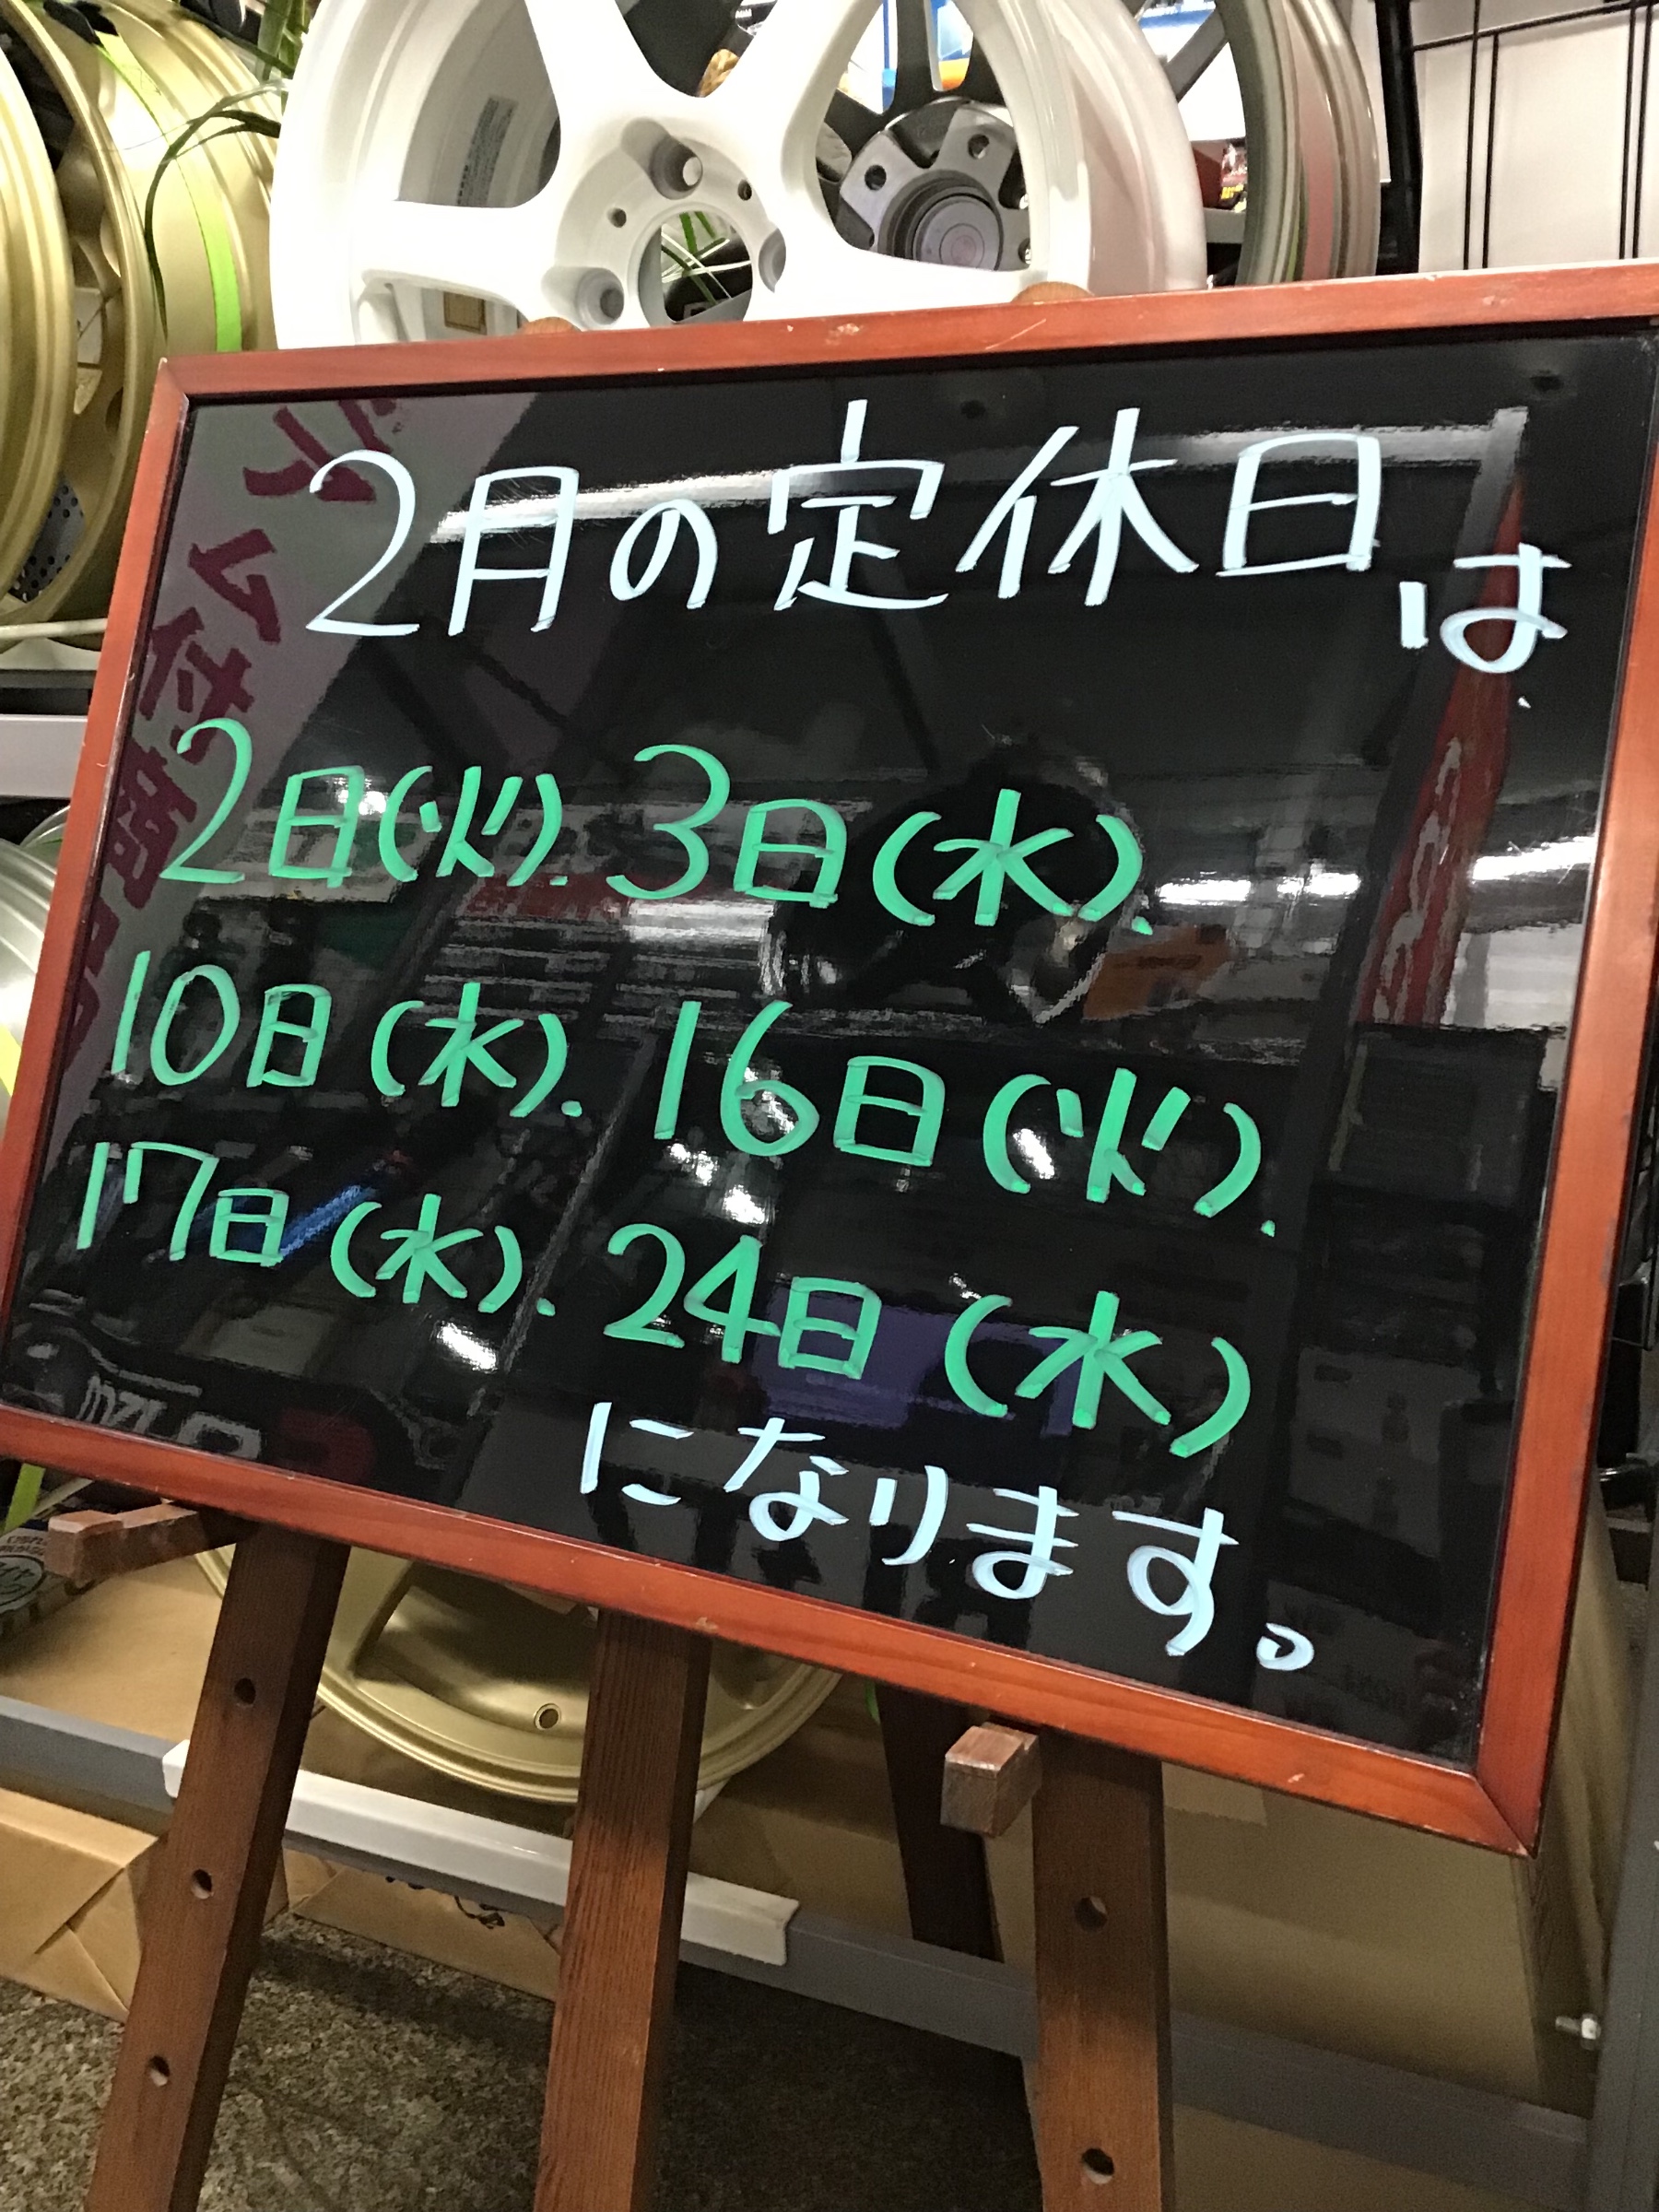 2月の定休日は
2日(火). 3日(水).
10日(水). 16日(火).
17日(水). 24日(水)
になります。